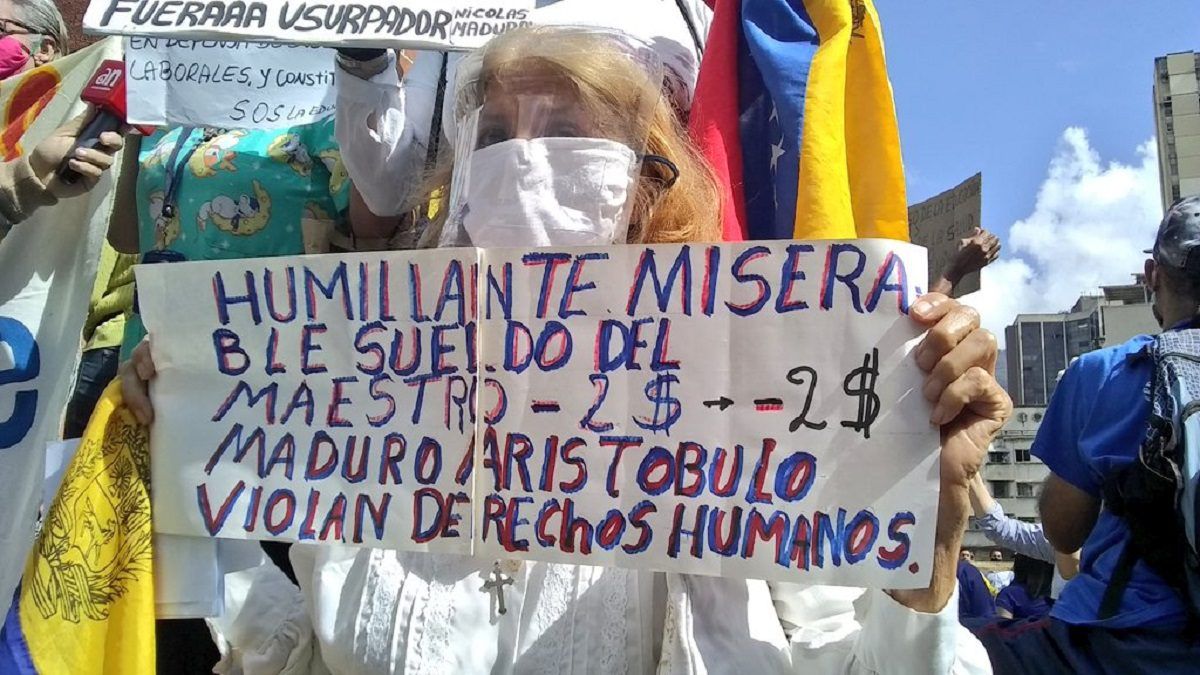 FUERAAA USURPADOR NICOLAS
MADURO
EN DEFENSA DE
LABORALES, Y CONSTIT
SOS LA EDU
an
HUMILLANTE. MISERA.
BLE SUELDO DEL
MAESTRO - 2 $ → - 2 $
MADURO ARISTOBULO
VIOLAN DERECHOS HUMANOS.
e